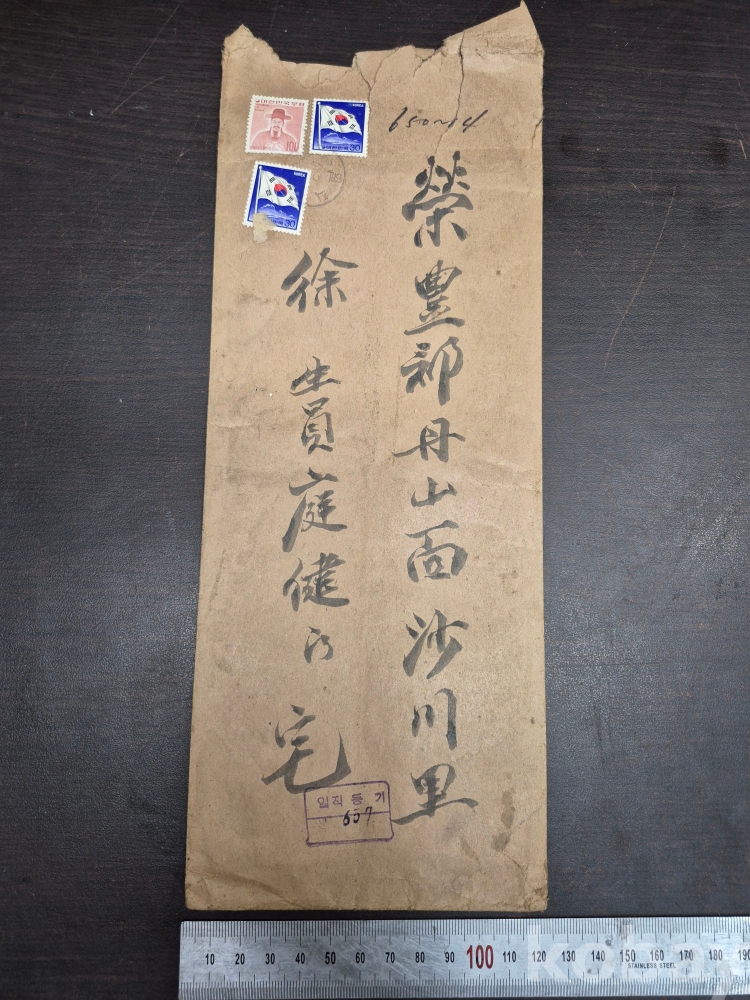 대한민국우표
100
KOREA
60
KOREA
650~14
榮豊郡丹山面沙川里
徐 生員庭健氏 宅
일직 등기
657
10 20 30 40 50 60 70 80 90 100 110 120 130 140 150 160 170 180 190
STAINLESS STEEL
kobay